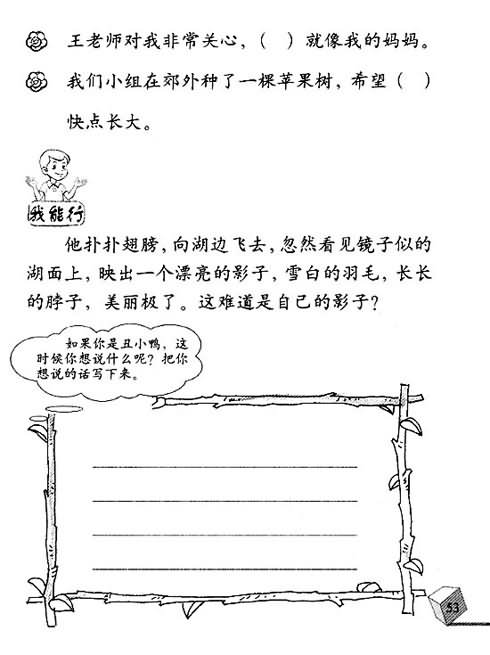 王老师对我非常关心，（ ）就像我的妈妈。
我们小组在郊外种了一棵苹果树，希望（ ）
快点长大。
我能行
他扑扑翅膀，向湖边飞去，忽然看见镜子似的
湖面上，映出一个漂亮的影子，雪白的羽毛，长长
的脖子，美丽极了。这难道是自己的影子？
如果你是丑小鸭，这
时候你想说什么呢？把你
想说的话写下来。
53